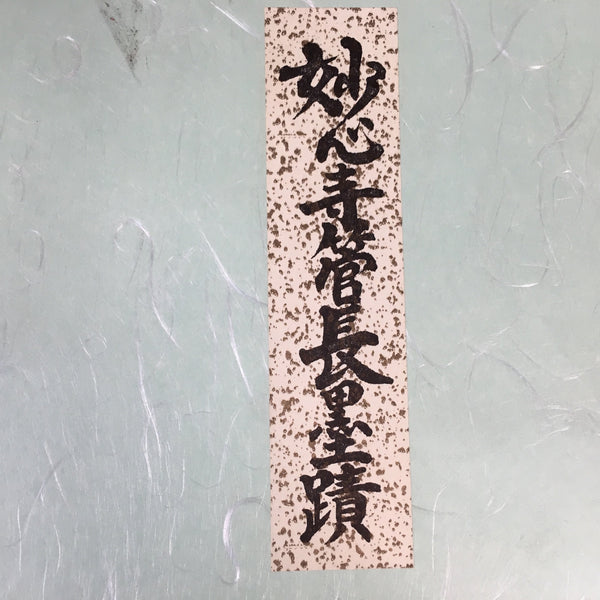 妙心寺管長墨蹟